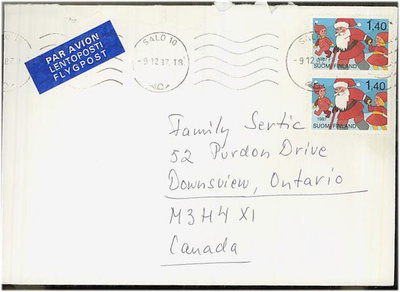 PAR AVION
LENTOPOSTI
FLYGPOST
SALO 10
-9.12.87.18
1,40
SUOMI FINLAND
1,40
1987
SUOMI FINLAND
Family Sertic
52 Purdon Drive
Downsview, Ontario
M3H4X1
Canada